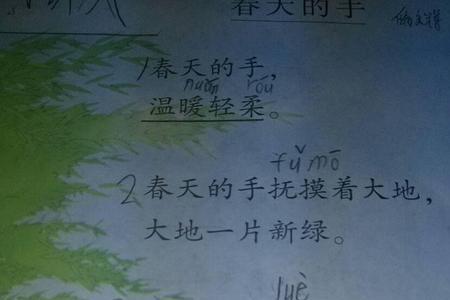 春天的手
1春天的手,
nuǎn róu
温暖轻柔。
fǔ mō
2春天的手抚摸着大地,
大地一片新绿。